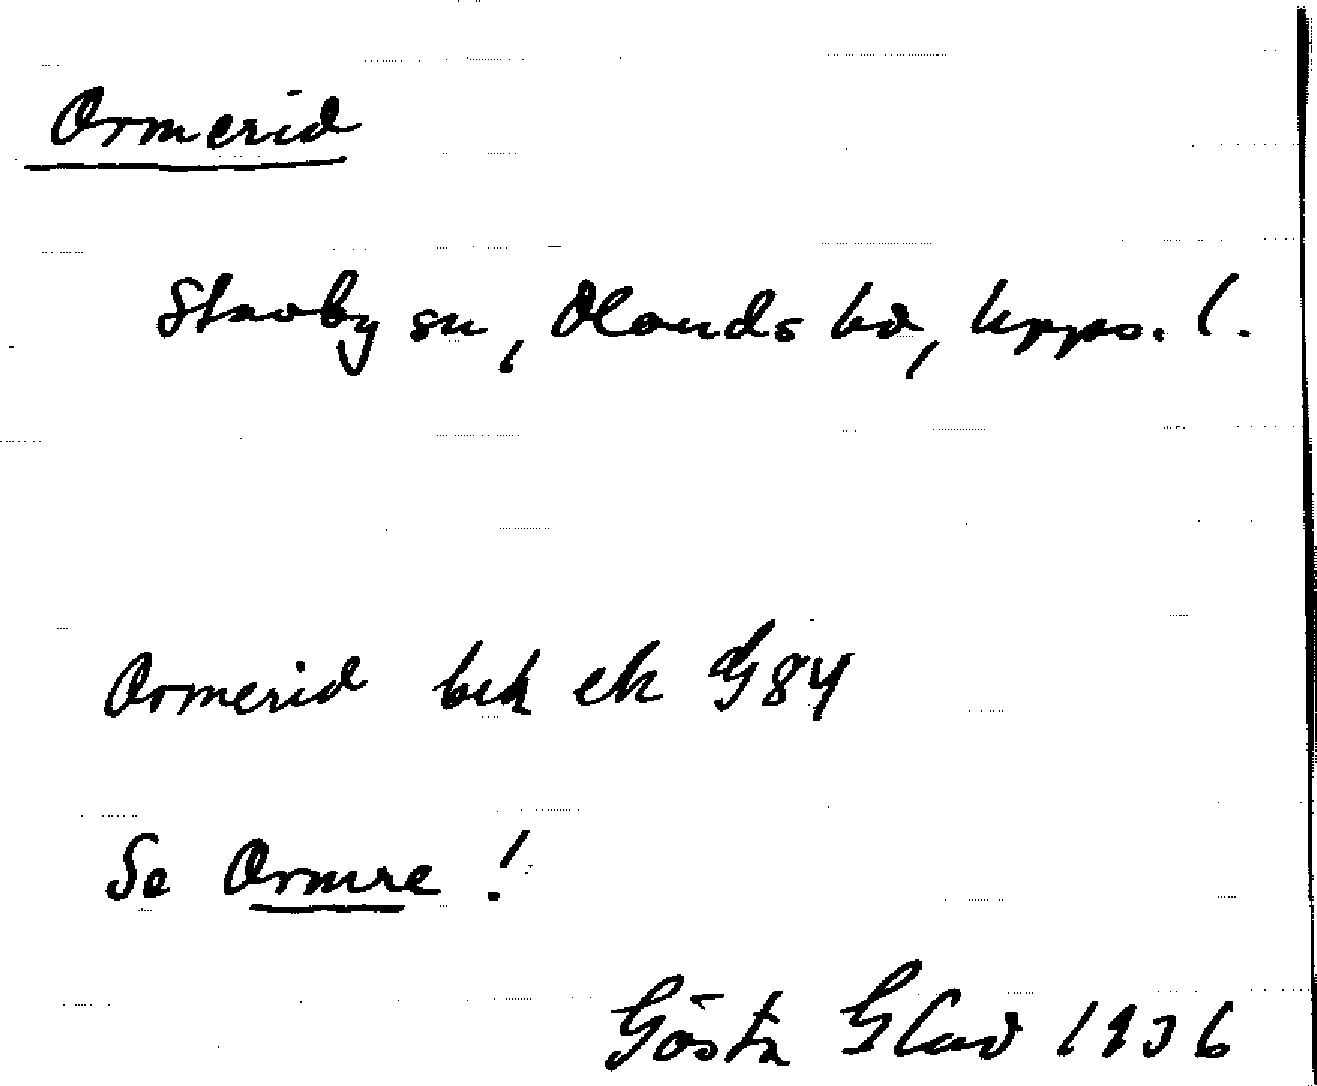 Ormerid
Stavby sn, Olands hd, Upps. l.
Ormerid bek ek G 84
Se Ormre!
Gösta Glad 1936